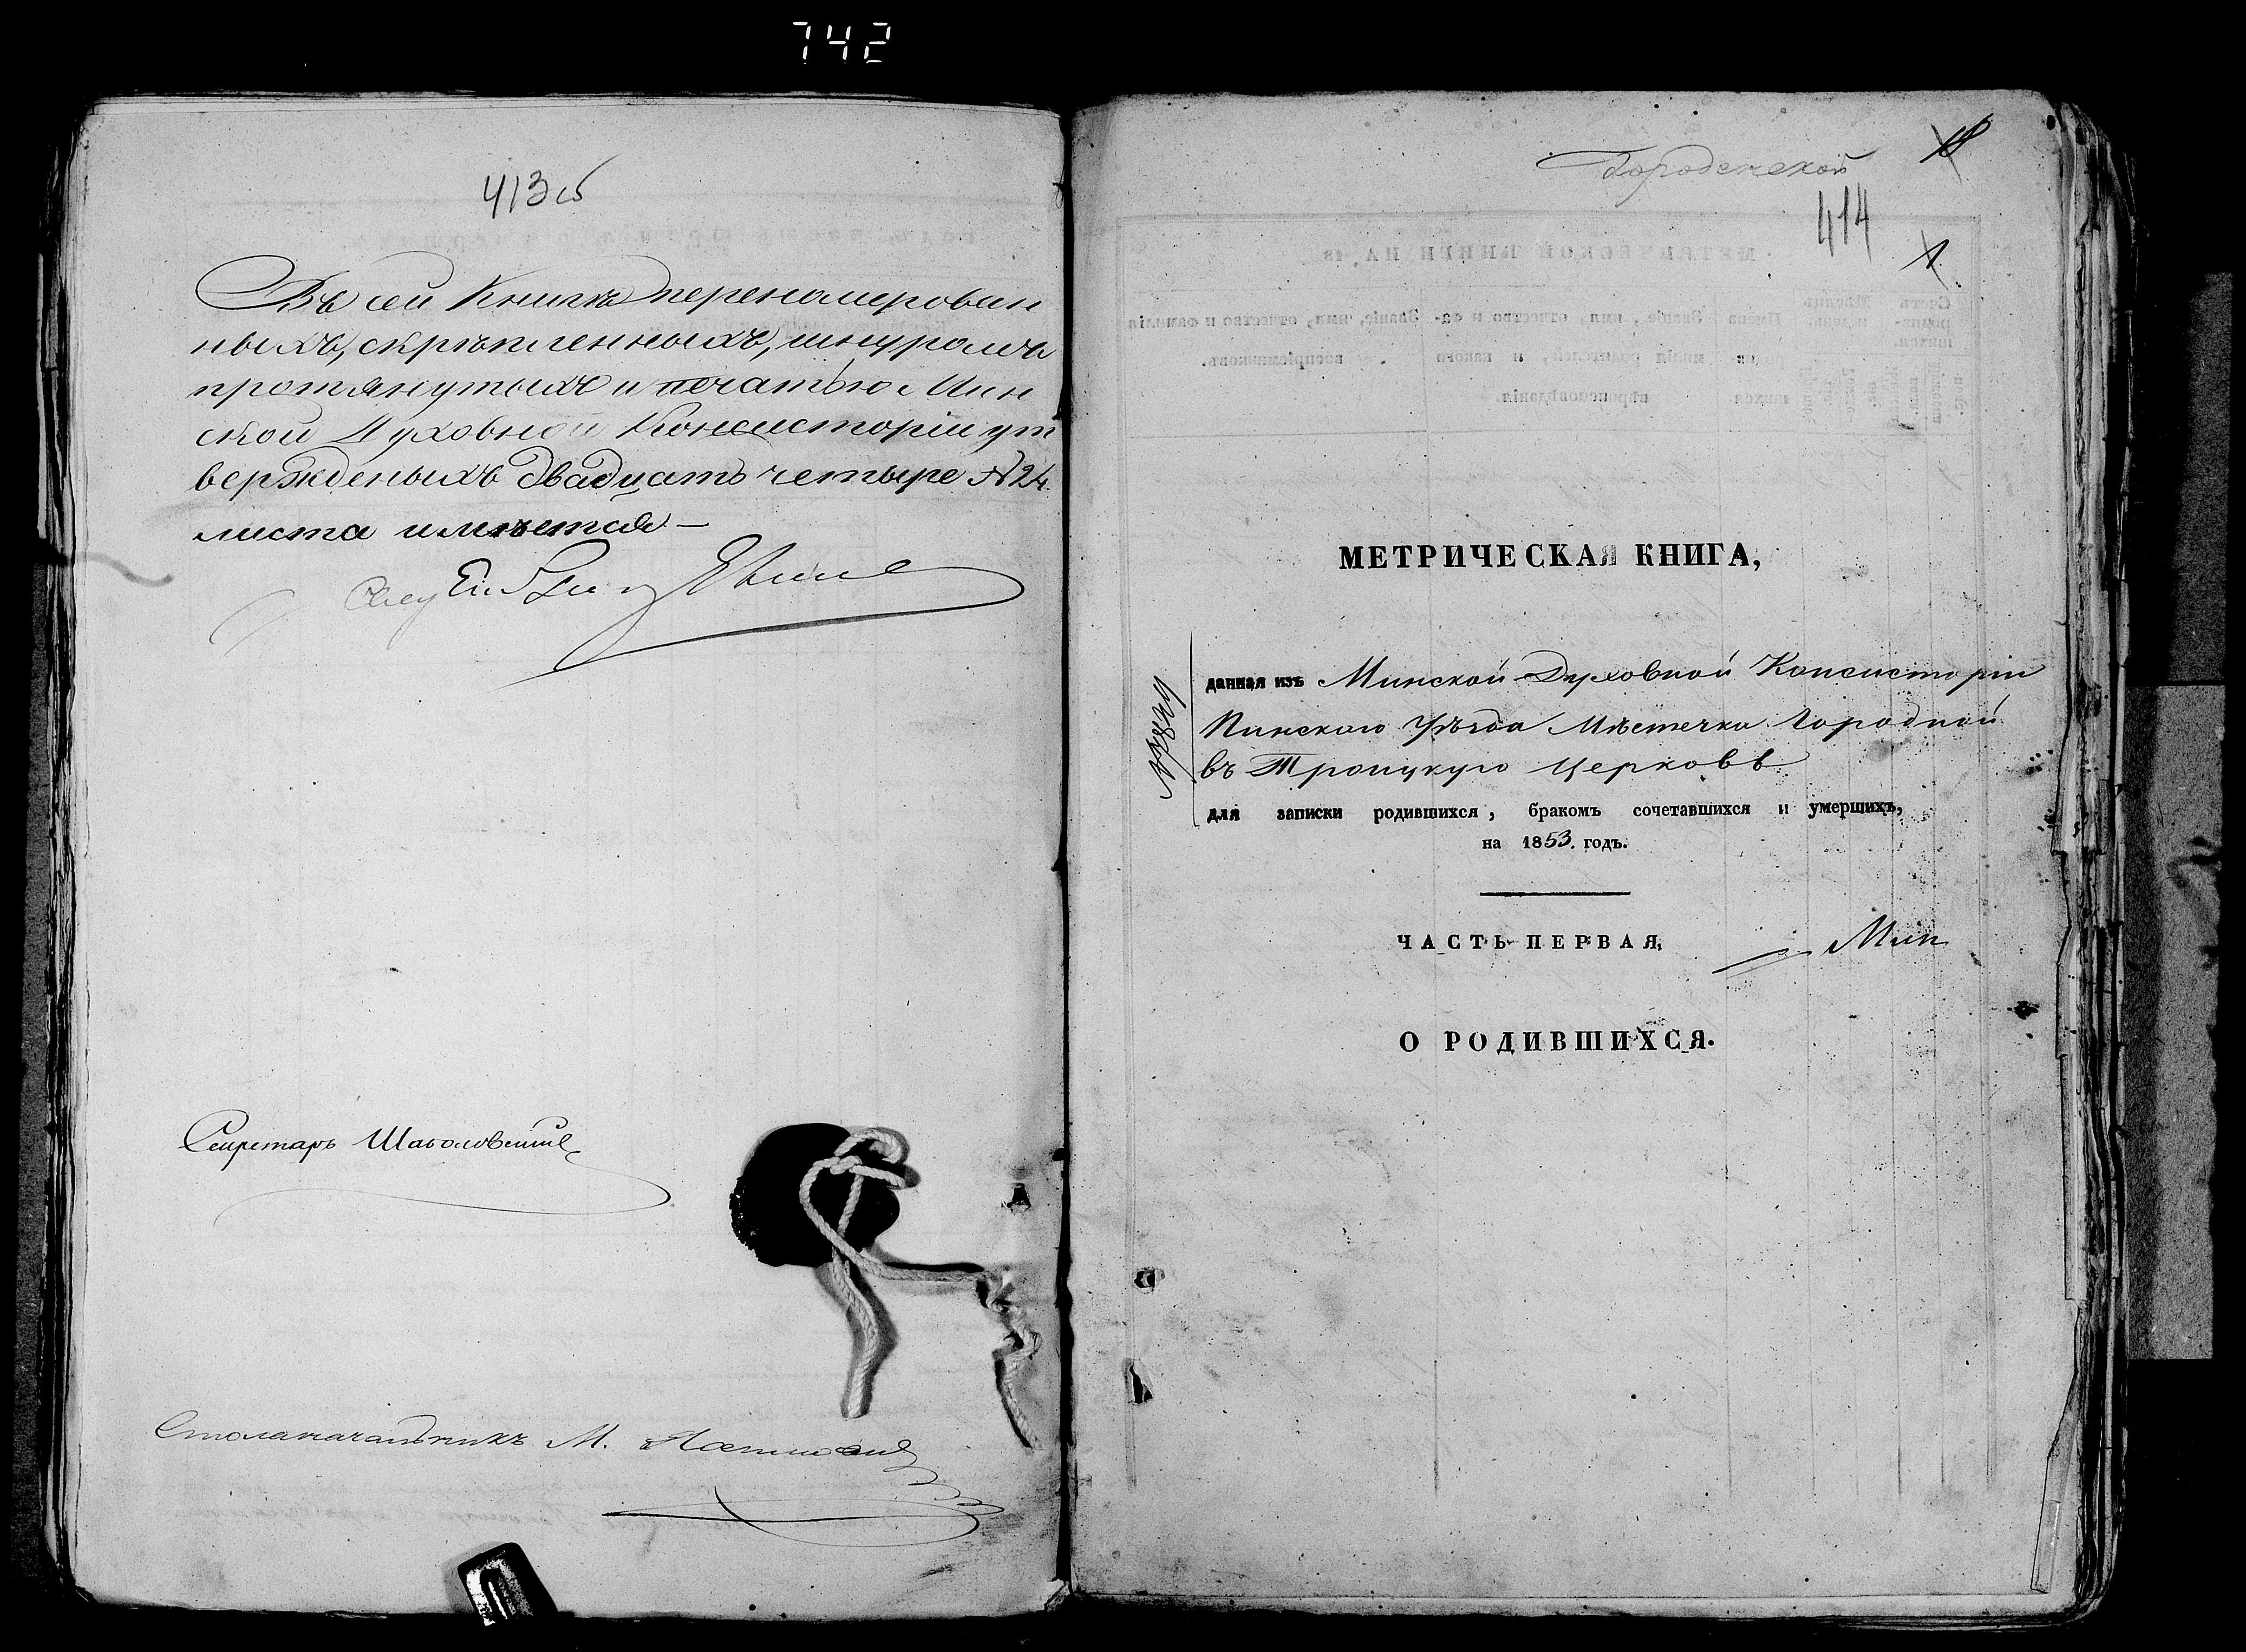 742
413об
Въ сей Книгѣ перенумерован
ныхъ, скрѣпленныхъ, шнуромъ
протянутыхъ и печатью Мин
ской Духовной Консисторіи ут
вержденыхъ двадцать четыре №24
листа имѣется —
Секретарь
Столоначальникъ М.
Городенской
414
1
МЕТРИЧЕСКАЯ КНИГА,
данная изъ Минской Духовной Консисторіи
Пинскаго Уѣзда Мѣстечка Городной
въ Троицкую Церковь
для записки родившихся, бракомъ сочетавшихся и умершихъ,
на 1853. годъ.
ЧАСТЬ ПЕРВАЯ,
Мин
О РОДИВШИХСЯ.